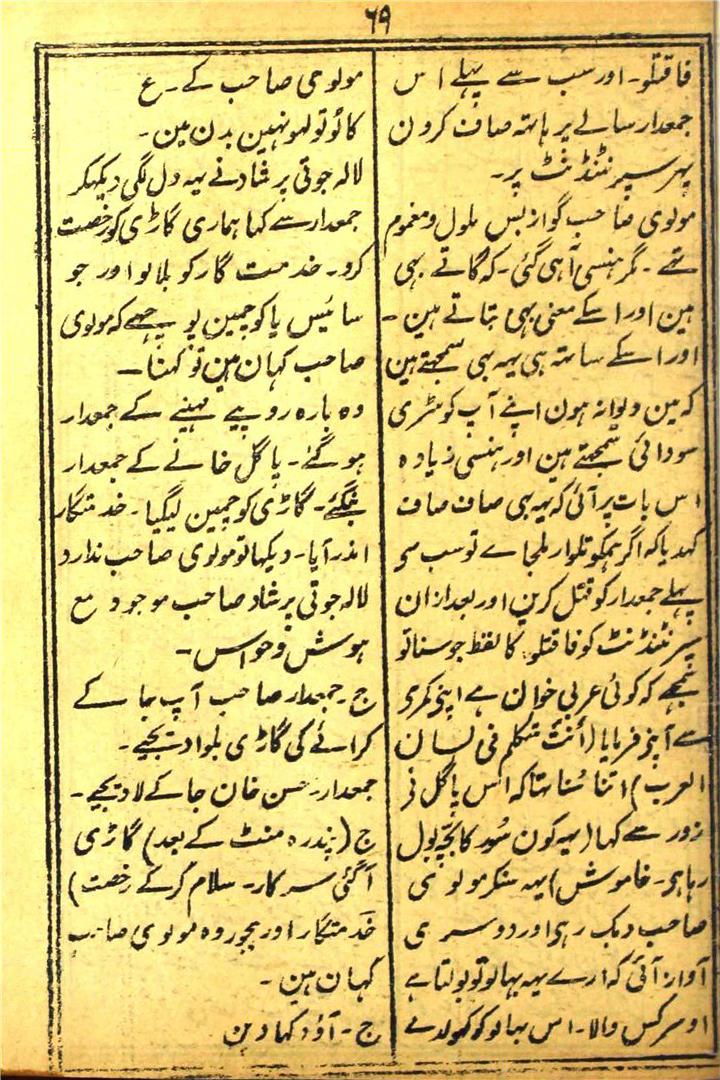 ۶۹
فاقتلو۔ اور سب سے پہلے اس
جمعدار سالے پر ہاتہ صاف کرون
پہر سپرنٹنڈنٹ پر۔
مولوی صاحب گو از بس ملول و مغموم
تہے۔ مگر ہنسی آہی گئی۔ کہ گاتے بہی
ہین اور اسکے معنی بہی بتاتے ہین۔
اور اسکے ساتہ ہی یہہ بہی سمجہتے ہین
کہ مین دیوانہ ہون اپنے آپ کو سٹری
سودائی سمجہتے ہین اور ہنسی زیادہ
اس بات پر آئی کہ یہہ بہی صاف صاف
کہدیا کہ اگر ہمکو تلوار ملجاے تو سب سی
پہلے جمعدار کو قتل کرین اور بعد ازان
سپرنٹنڈنٹ کو فاقتلو کا لفظ جو سنا تو
سمجہے کہ کوئی عربی خوان ہے اپنی کمری
سے آپنے فرمایا (أنت متکلم فی لسان
العرب) اتنا سُنا تہا کہ اس پاگل نی
زور سے کہا (یہہ کون سُود کا بچّہ بول
رہا ہی۔ خاموش) یہہ سنکر مولوی
صاحب دبک رہی اور دوسری
آواز آئی کہ ارے یہہ بہالو تو بولتا ہے
او سرکس والا۔ اس بہالو کو کہولدے
مولوی صاحب کے۔ ع
کاٹو تو لہو نہین بدن مین۔
لالہ جوتی پرشاد نے یہہ دل لگی دیکہکر
جمعدار سے کہا ہماری گاڑی کو رخصت
کرو۔ خدمت گار کو بلالو اور جو
سائیس یا کوچمین پوچہے کہ مولوی
صاحب کہان ہین تو کہنا۔
وہ بارہ روپیے مہینے کے جمعدار
ہوگئے۔ پاگل خانے کے جمعدار
بنگئے۔ گاڑی کوچمین لیگیا۔ خدمتگار
اندر آیا۔ دیکہا تو مولوی صاحب ندارد
لالہ جوتی پرشاد صاحب موجود مع
ہوش و حواس۔
ج۔ جمعدار صاحب آپ جا کے
کرائے کی گاڑی بلوا دیجیے۔
جمعدار۔ حسن خان جا کے لا دیجیے۔
ج (پندرہ منٹ کے بعد) گاڑی
آگئی سرکار۔ سلام کرکے رخصت)
خدمتگار اور حجور وہ مولوی صاحب
کہان ہین۔
ج۔ آؤ دکہا دین